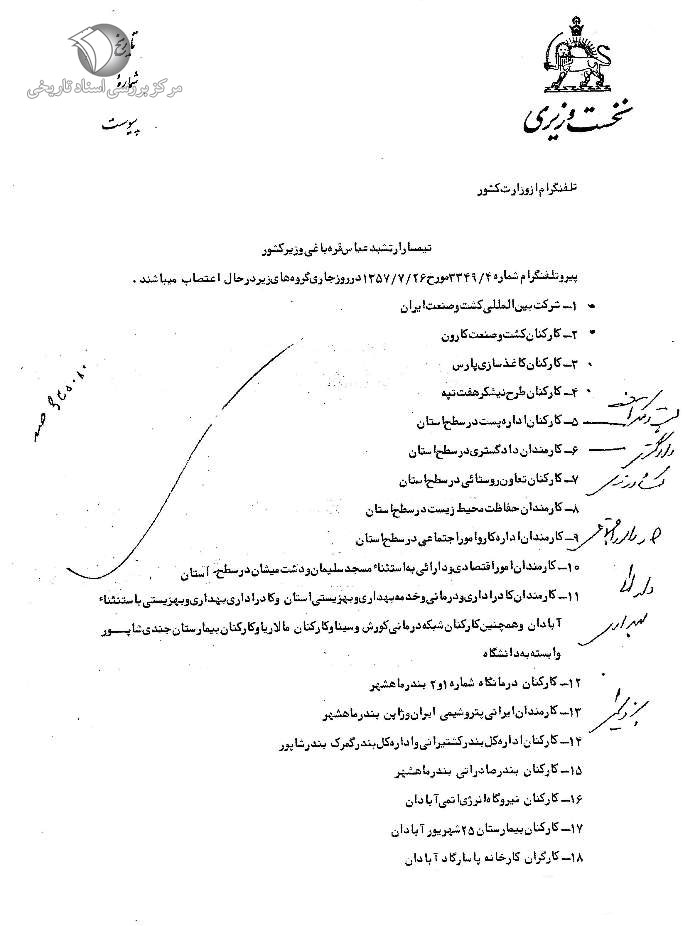 نخست وزیری
تاریخ
شماره
پیوست
مرکز بررسی اسناد تاریخی
تلفنگرام از وزارت کشور
تیمسار ارتشبد عباس قره باغی وزیر کشور
پیرو تلفنگرام شماره ۳۳۴۹/۴ مورخ ۱۳۵۷/۷/۲۶ در روز جاری گروه های زیر در حال اعتصاب میباشند .
۱ــ شرکت بین المللی کشت و صنعت ایران
۲ــ کارکنان کشت و صنعت کارون
۳ــ کارکنان کاغذ سازی پارس
۴ــ کارکنان طرح نیشکر هفت تپه
۵ــ کارکنان اداره پست در سطح استان
۶ــ کارمندان دادگستری در سطح استان
۷ــ کارکنان تعاون روستائی در سطح استان
۸ــ کارمندان حفاظت محیط زیست در سطح استان
۹ــ کارمندان اداره کار و امور اجتماعی در سطح استان
۱۰ــ کارمندان امور اقتصادی و دارائی به استثناء مسجد سلیمان و دشت میشان در سطح استان
۱۱ــ کارمندان کادر اداری و درمانی و خدمه بهداری و بهزیستی استان و کادر اداری بهداری و بهزیستی باستثناء
آبادان و همچنین کارکنان شبکه درمانی کورش و سینا و کارکنان مالاریا و کارکنان بیمارستان جندی شاپور
وابسته به دانشگاه
۱۲ــ کارکنان درمانگاه شماره ۱و۲ بندر ماهشهر
۱۳ــ کارمندان ایرانی پتروشیمی ایران و ژاپن بندر ماهشهر
۱۴ــ کارکنان اداره کل بندر کشتیرانی و اداره کل بندر گمرک بندر شاپور
۱۵ــ کارکنان بندر صادراتی بندر ماهشهر
۱۶ــ کارکنان نیروگاه انرژی اتمی آبادان
۱۷ــ کارکنان بیمارستان ۲۵ شهریور آبادان
۱۸ــ کارگران کارخانه پاسارگاد آبادان
دادگستری
کشاورزی
بهداری